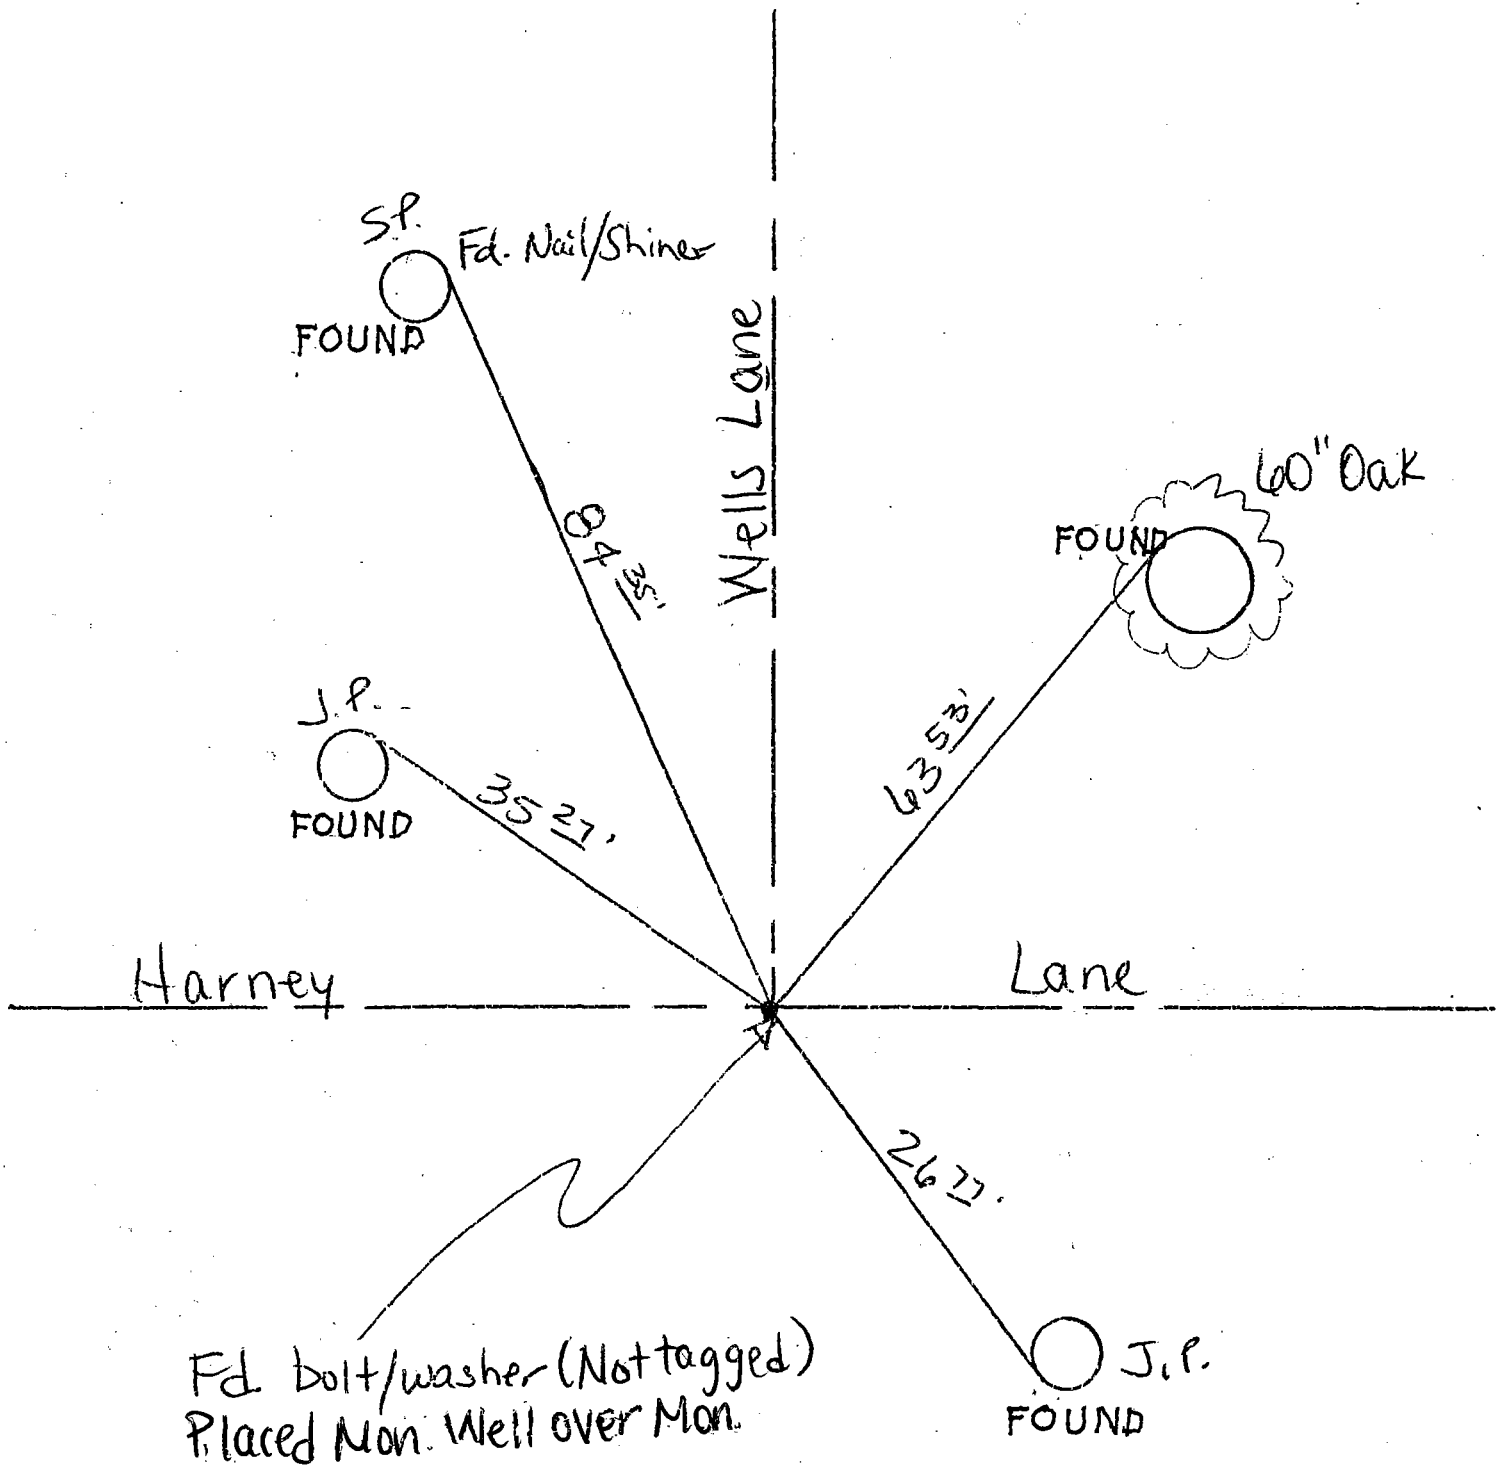 S.P.
Fd. Nail/Shiner
FOUND
Wells Lane
60" Oak
FOUND
84 35'
J.P.
FOUND
35 27'
63 53'
Harney Lane
26 77'
Fd. bolt/washer (Not tagged)
Placed Mon. Well over Mon.
J.P.
FOUND